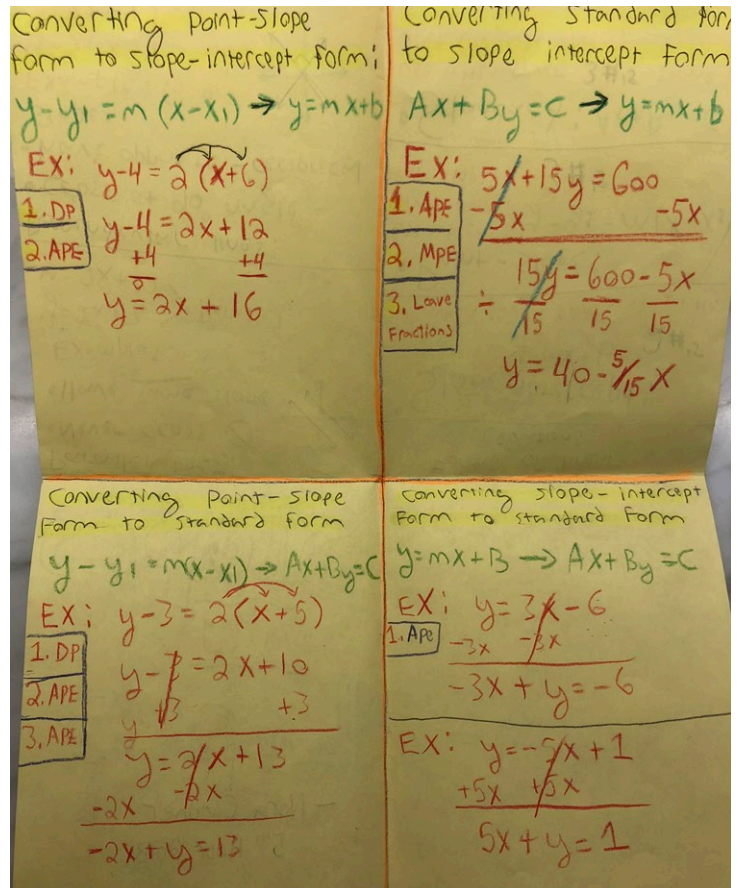 Converting point-slope
form to slope-intercept form:
y-y₁ = m (x-x₁) → y=mx+b
EX: y-4 = 2 (x+6)
1. DP
2. APE
y-4 = 2x+12
+4 +4
0
y=2x + 16
Converting Standard for
to slope intercept form
Ax+By=C → y=mx+b
EX: 5x+15y=600
1. APE
2. MPE
3. Leave
Fractions
-5x -5x
15y=600-5x
÷ 15 15 15
y=40-5/15 x
Converting point-slope
Form to standard form
y-y₁=m(x-x₁) → Ax+By=C
EX: y-3=2(x+5)
1. DP
2. APE
3. APE
y-3=2x+10
+3 +3
y
y=2x+13
-2x -2x
-2x+y=13
Converting slope-intercept
Form to standard Form
y=mx+B → Ax+By=C
EX: y=3x-6
1. Ape
-3x -3x
-3x+y=-6
EX: y=-5x+1
+5x +5x
5x+y=1